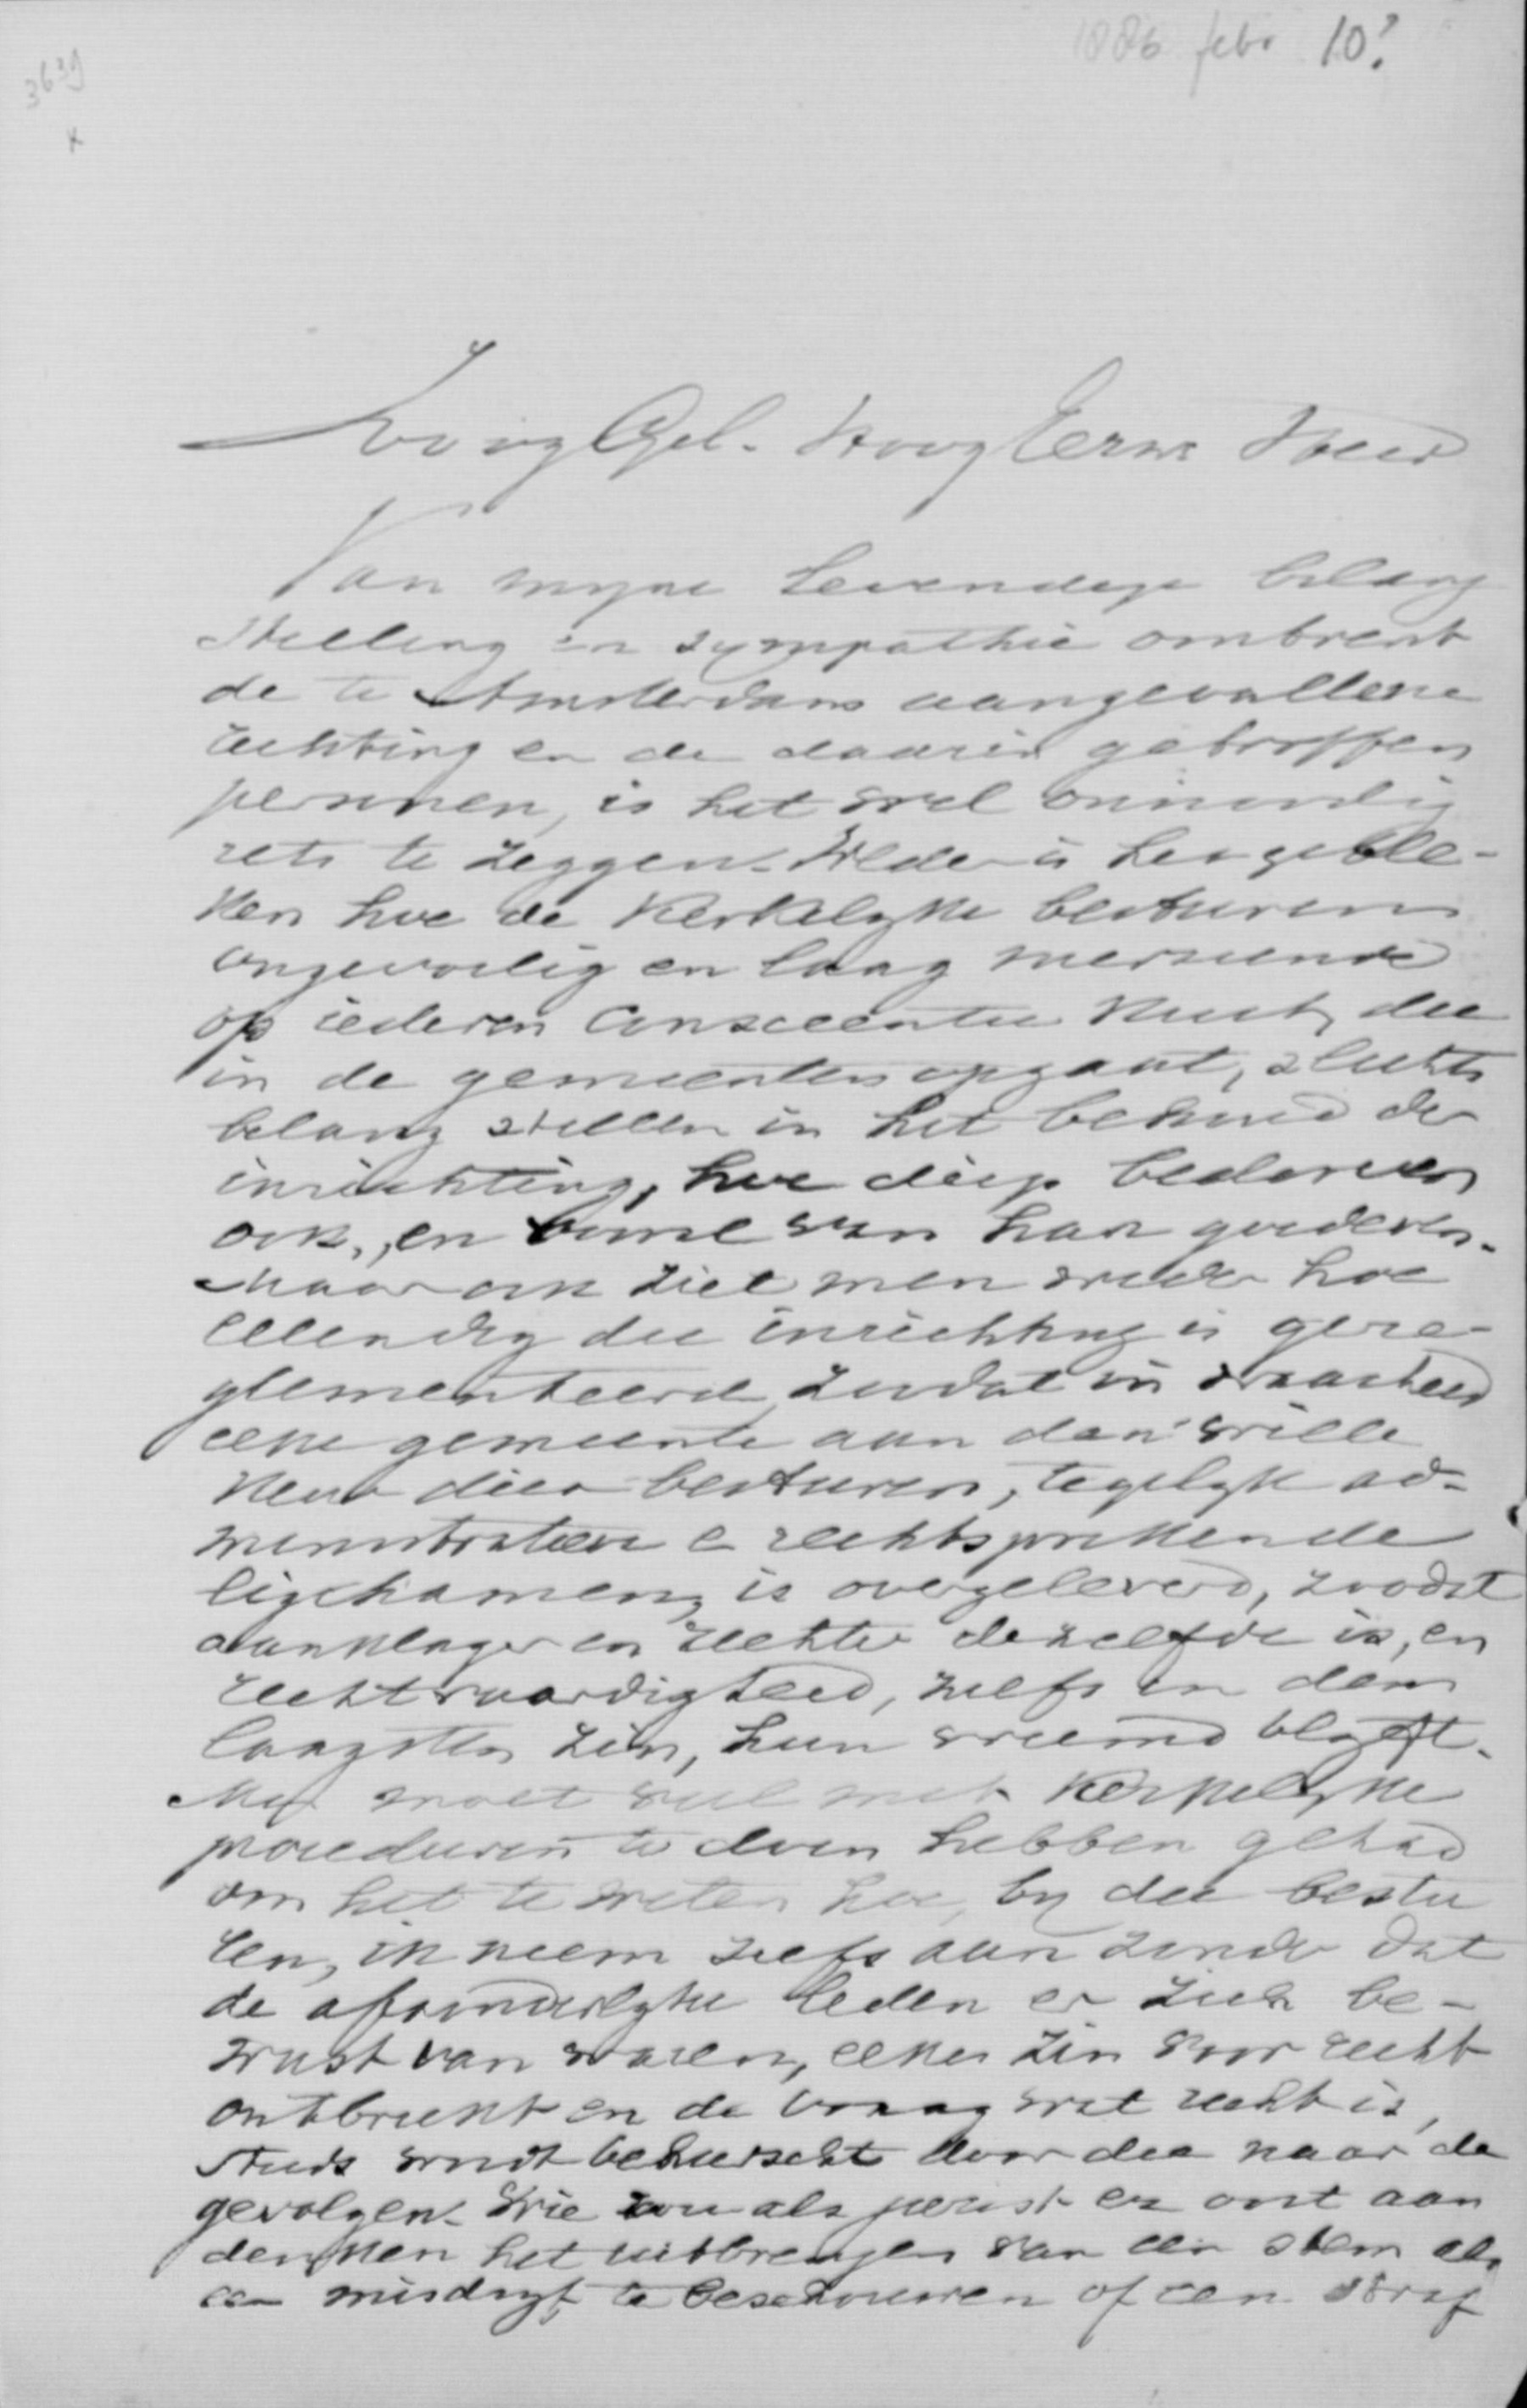 1886 febr 10?
3639
x
HoogGel. HoogEerw Heer
Van myne levendige belang
stelling en sympathie omtrent
de te Amsterdam aangevallene
richting en de daarin getroffen
personen, is het wel onnoodig
iets te zeggen. Weder is het geble-
ken hoe de Kerkelyke besturen
ongevoelig en laag neerziende
op iederen Conscientie Kreet, die
in de gemeenten opgaat, slechts
belang stellen in het behoud der
inrichting, hoe diep bedorven
ook, en van haar goederen.
Maar ook ziet men weder hoe
ellendig die inrichting is gere-
glementeerd, zoodat in waarheid
eene gemeente aan den wille
keur dier besturen, tegelyk ad-
ministratieve e rechtsprekende
ligchamen, is overgeleverd, zoodat
aanklager en rechter dezelfde is, en
rechtvaardigheid, zelfs in den
laagsten zin, hun vreemd blyft.
Men moet veel met Kerkelyke
procedures te doen hebben gehad
om het te weten hoe, by die bestu
ren, ik neem zelfs aan zonder dat
de afzonderlyke leden er zich be-
wust van waren, elken zin voor recht
ontbreekt en de vraag wat recht is,
steeds wordt beheerscht door die naar de
gevolgen. Wie zou als jurist er ooit aan
denken het uitbrengen van een stem als
een misdryf te beschouwen of een straf